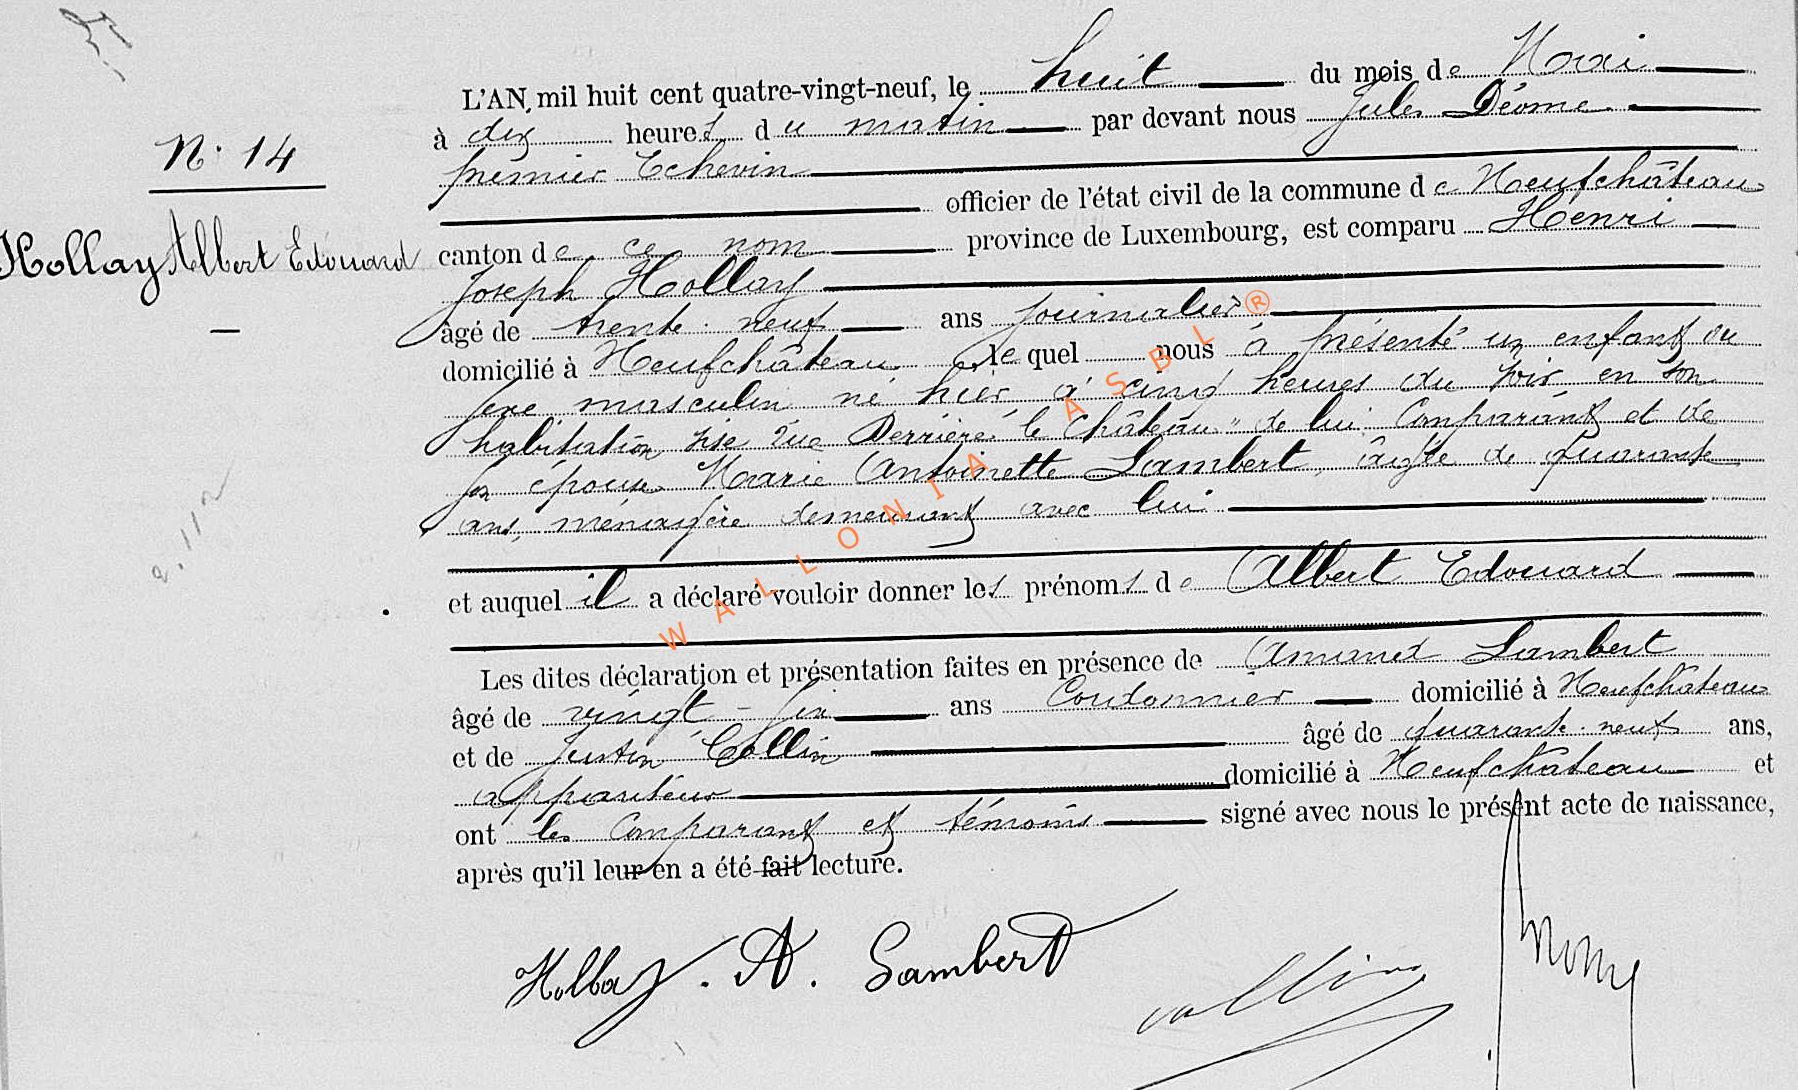 L'AN mil huit cent quatre-vingt-neuf, le huit du mois de Mai
à dix heures du matin par devant nous Jules Déome
N. 14
premier Echevin
officier de l'état civil de la commune de Neufchâteau
Hollay Albert Edouard
canton de ce nom province de Luxembourg, est comparu Henri
Joseph Hollay
âgé de trente-neuf ans journalier
domicilié à Neufchâteau lequel nous a présenté un enfant du
sexe masculin né hier à cinq heures du soir en son
habitation sise rue "Derrière le Château" de lui Comparant et de
sa épouse Marie Antoinette Lambert, âgée de quarante
ans, ménagère demeurant avec lui.
et auquel il a déclaré vouloir donner les prénoms de Albert Edouard
Les dites déclaration et présentation faites en présence de Amand Lambert
âgé de vingt-six ans Cordonnier domicilié à Neufchâteau
et de Justin Collin âgé de quarante-neuf ans,
appariteur domicilié à Neufchâteau et
ont les Comparant et témoins signé avec nous le présent acte de naissance,
après qu'il leur en a été fait lecture.
Hollay. A. Lambert
Collin
WALLONIA ASBL ®